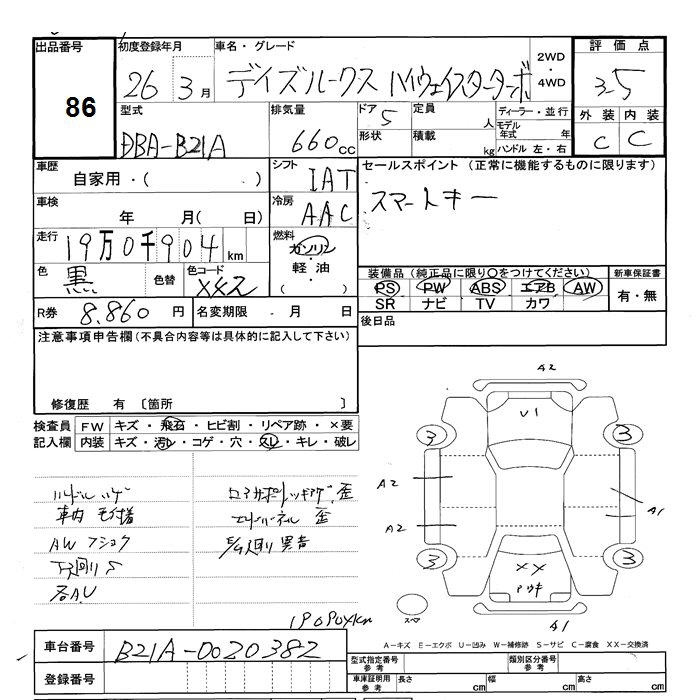 出品番号 初度登録年月 車名・グレード 2WD・4WD 評価点
86 26 3月 デイズルークス ハイウェイスターターボ 3.5
型式 排気量 ドア 5 定員 人 ディーラー・並行 外装 内装
DBA-B21A 660cc 形状 積載 kg モデル年式 年 ハンドル 左・右 C C
車歴 自家用・( ) シフト IAT セールスポイント (正常に機能するものに限ります)
車検 年 月( 日) 冷房 AAC スマートキー
走行 19万0千904km 燃料 ガソリン・軽油・( )
色 黒 色替 色コード 装備品 (純正品に限り○をつけてください) 新車保証書
PS PW ABS エアB AW 有・無
SR ナビ TV カワ
R券 8,860円 名変期限 ・ 月 日 後日品
注意事項申告欄 (不具合内容等は具体的に記入して下さい)
修復歴 有 〔箇所 〕
検査員記入欄 FW キズ・飛石・ヒビ割・リペア跡・×要
内装 キズ・汚レ・コゲ・穴・スレ・キレ・破レ
ハンドル ハゲ
車内 モケ揺
AW フショク
下廻りS
各AU
エンドパネル 歪
E/G廻り異音
190904km
A2
U1
3 3
A2 A1
A2
3 3
XX
スペア
A1
A-キズ E-エクボ U-凹み W-補修跡 S-サビ C-腐食 XX-交換済
車台番号 B21A-0020382
型式指定番号 参考 類別区分番号 参考
登録番号 車庫証明用 参考 長さ cm 幅 cm 高さ cm